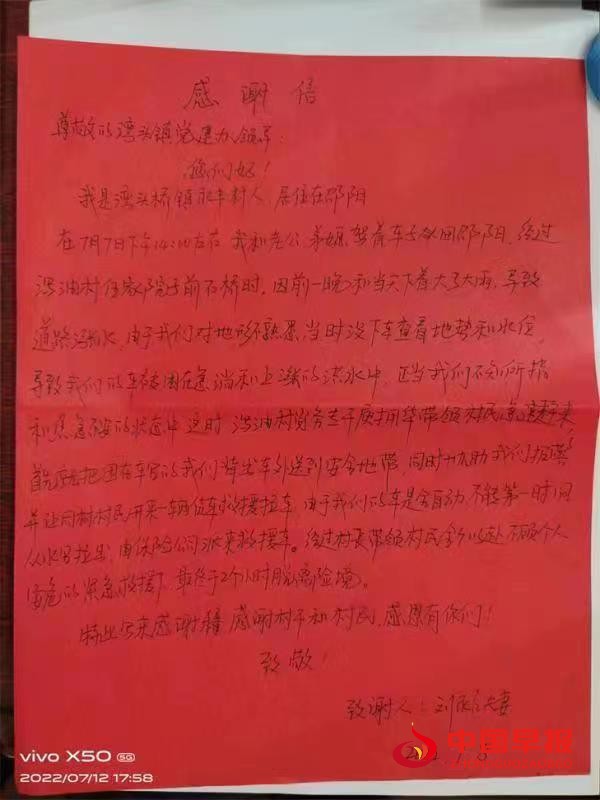 感谢信
尊敬的湾头镇党建办领导:
您们好!
我是湾头桥镇 村人,居住在邵阳
在7月7日下午14:10左右 我和老公、弟嫂、驾着车子从田邵阳,经过
泻油村任家院子前石桥时,因前一晚和当天下着大大雨,导致
道路 水,由于我们对地形不熟悉,当时没下车查看地势和水位,
导致我们的车被困在急湍和上涨的洪水中,正当我们不知所措
和焦急不安的状态中 这时 泻油村 带领村民急速赶来,
首先就把困在车里的我们背出车外送到安全地带,同时 协助我们
并让同村村民开来一辆 车救援拉车,由于我们的车是全自动,不能第一时间
从水里拉出,由保险公司派来救援车。经过村长带领村民 ,不顾个人
安危的紧急救援,最终于2个小时脱离险境。
特此写来感谢 感谢村干和村民,感恩有你们!
致敬!
致谢人: 夫妻
中国早报
vivo X50 5G
2022/07/12 17:58